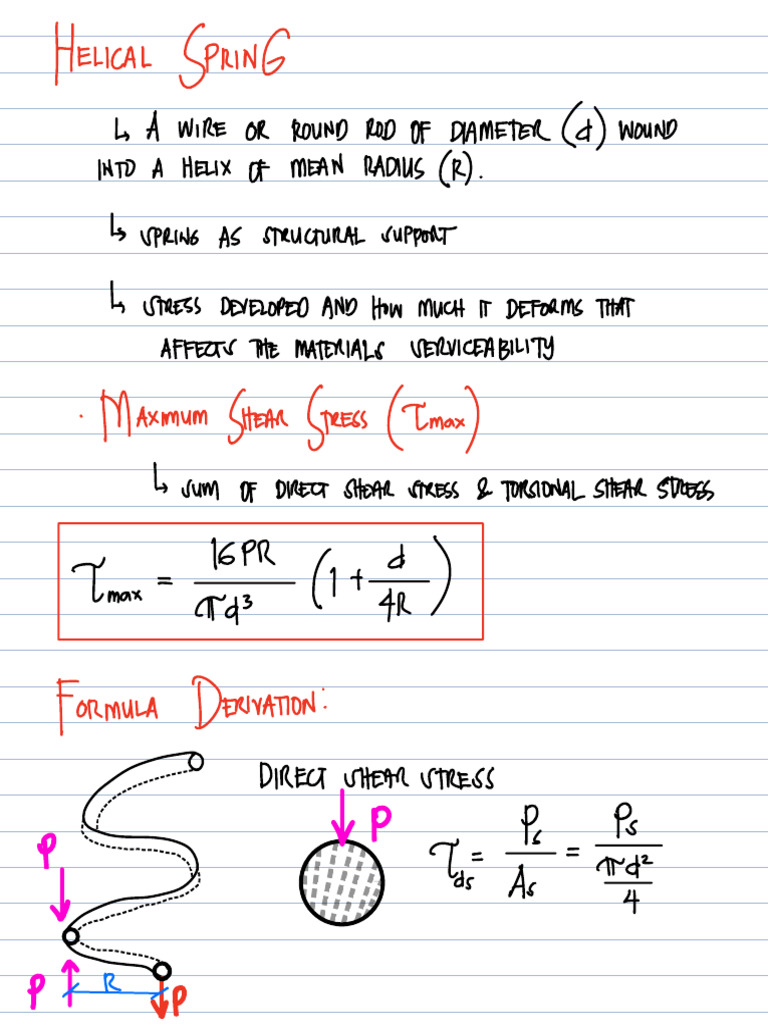 HELICAL SPRING
↳ A WIRE OR ROUND ROD OF DIAMETER (d) WOUND
INTO A HELIX OF MEAN RADIUS (R).
↳ SPRING AS STRUCTURAL SUPPORT
↳ STRESS DEVELOPED AND HOW MUCH IT DEFORMS THAT
AFFECTS THE MATERIALS SERVICEABILITY
· MAXIMUM SHEAR STRESS (τmax)
↳ SUM OF DIRECT SHEAR STRESS & TORSIONAL SHEAR STRESS
τmax = 16PR/πd³ (1 + d/4R)
FORMULA DERIVATION:
DIRECT SHEAR STRESS
P
P
τds = Ps/As = Ps/(πd²/4)
P
R
P